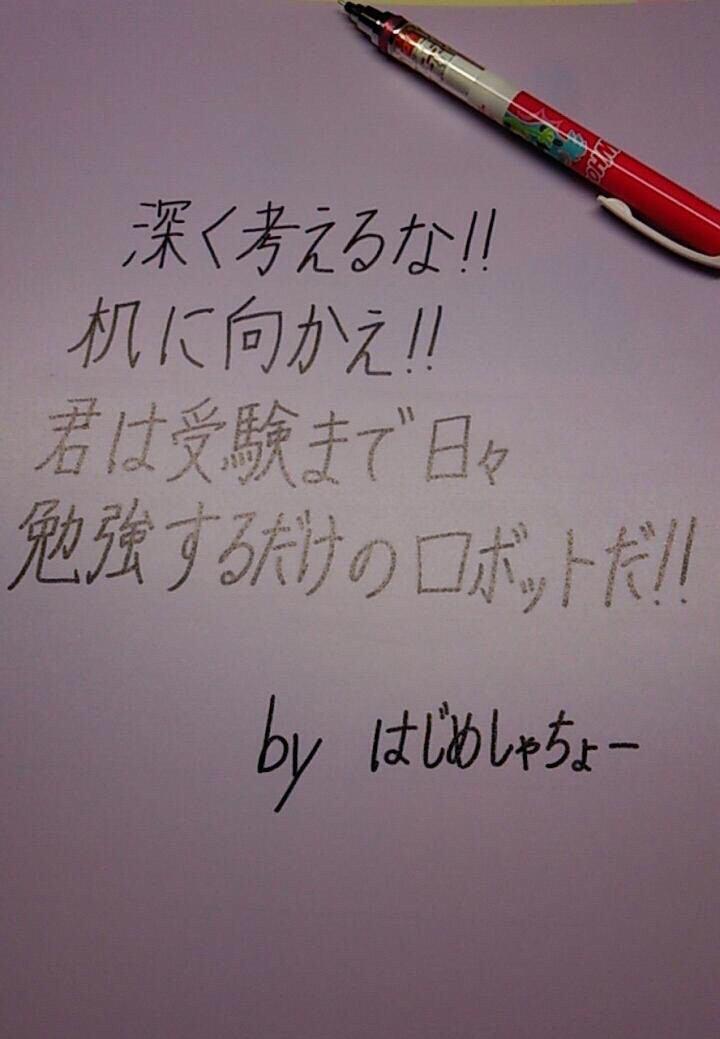 深く考えるな!!
机に向かえ!!
君は受験まで日々
勉強するだけのロボットだ!!
by はじめしゃちょー